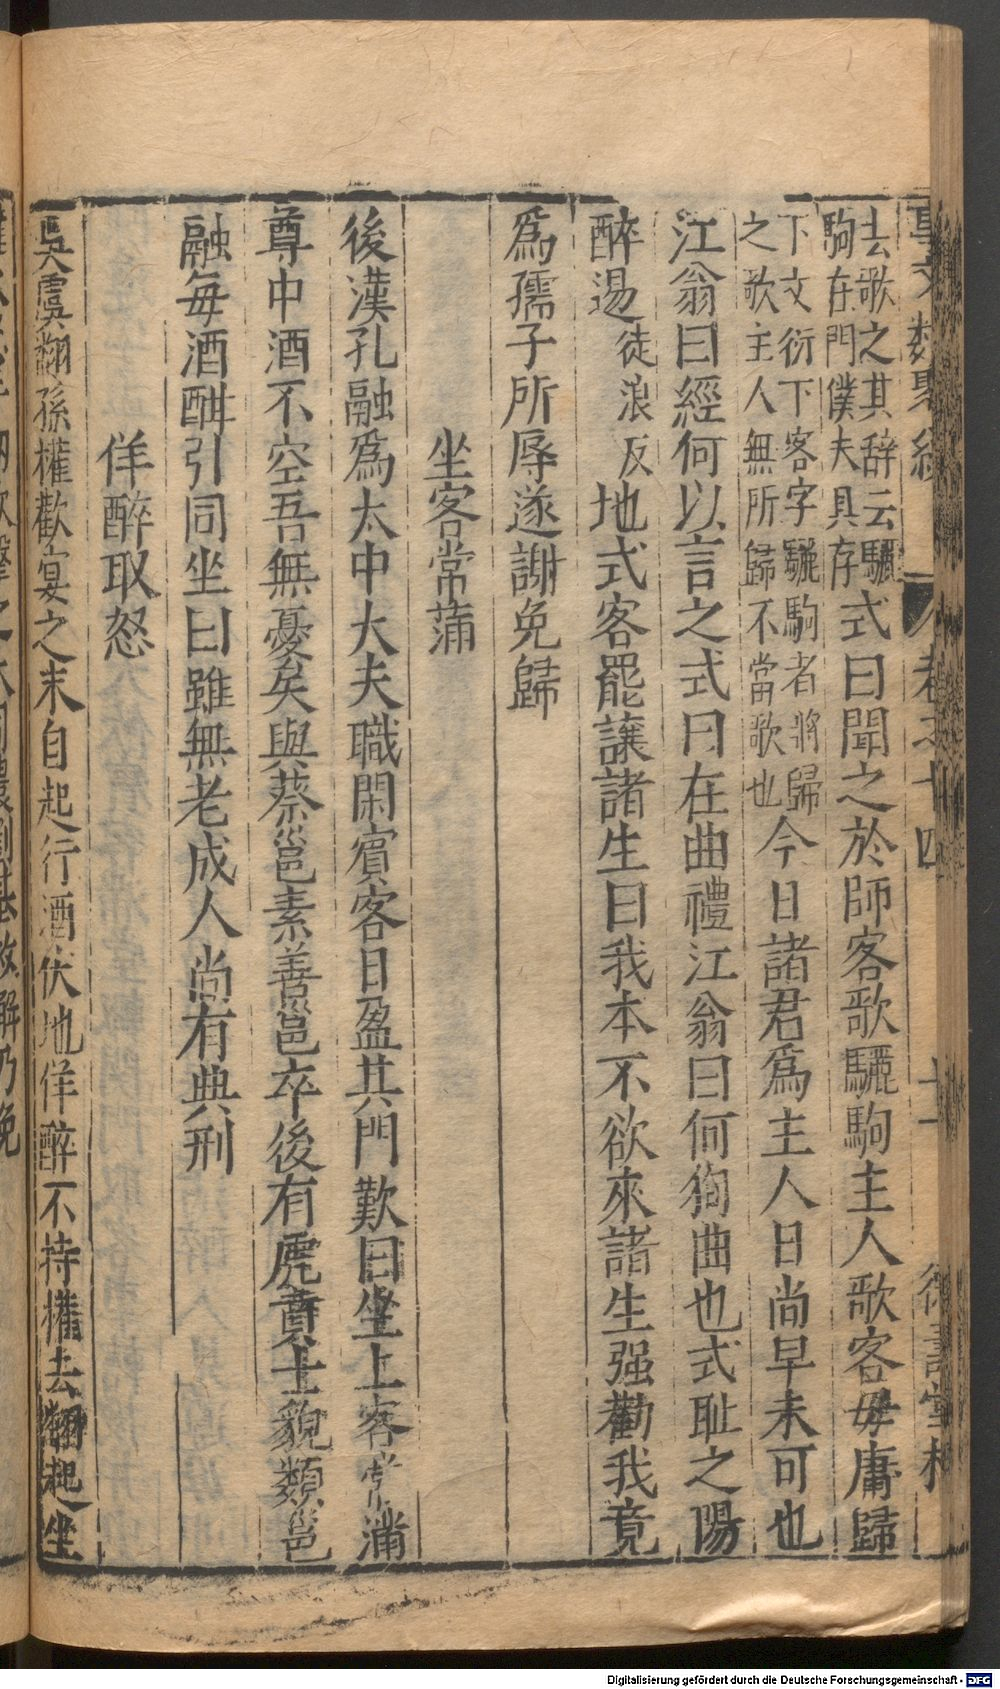 事文類聚續 卷之十四 十一 德壽堂梓
去歌之其辞云驪
駒在門僕夫具存式曰聞之於師客歌驪駒主人歌客毋庸歸
下文衍下客字驪駒者將歸
之歌主人無所歸不當歌也今日諸君爲主人日尚早未可也
江翁曰經何以言之式曰在曲禮江翁曰何狗曲也式耻之陽
醉逿徒浪反地式客罷讓諸生曰我本不欲來諸生强勸我竟
爲孺子所辱遂謝免歸
坐客常蒲
後漢孔融爲太中大夫職閑賓客日盈其門歎曰坐上客常滿
尊中酒不空吾無憂矣與蔡邕素善邕卒後有虎賁士貌類邕
融每酒酣引同坐曰雖無老成人尚有典刑
佯醉取怒
吳虞翻孫權歡宴之末自起行酒伏地佯醉不持權去翻起坐
Digitalisierung gefördert durch die Deutsche Forschungsgemeinschaft - DFG